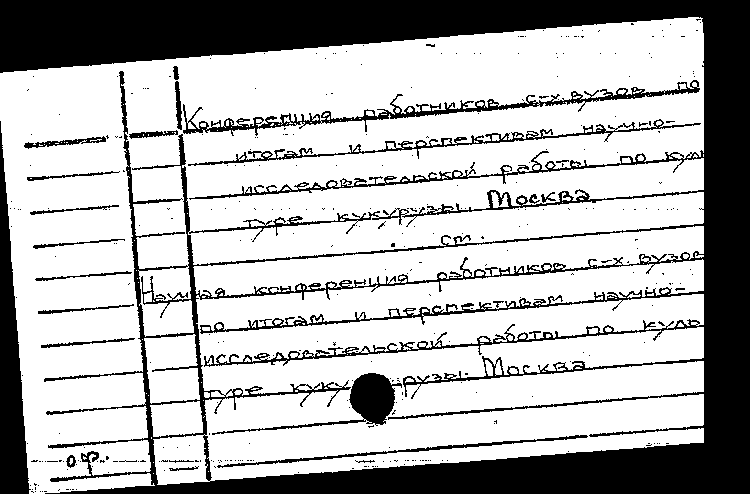 Конференция работников с-х. вузов по
итогам и перспективам научно-
исследовательской работы по куль
туре кукурузы. Москва.
см.
Научная конференция работников с-х. вузов
по итогам и перспективам научно-
исследовательской работы по куль
туре кукурузы. Москва
оф.